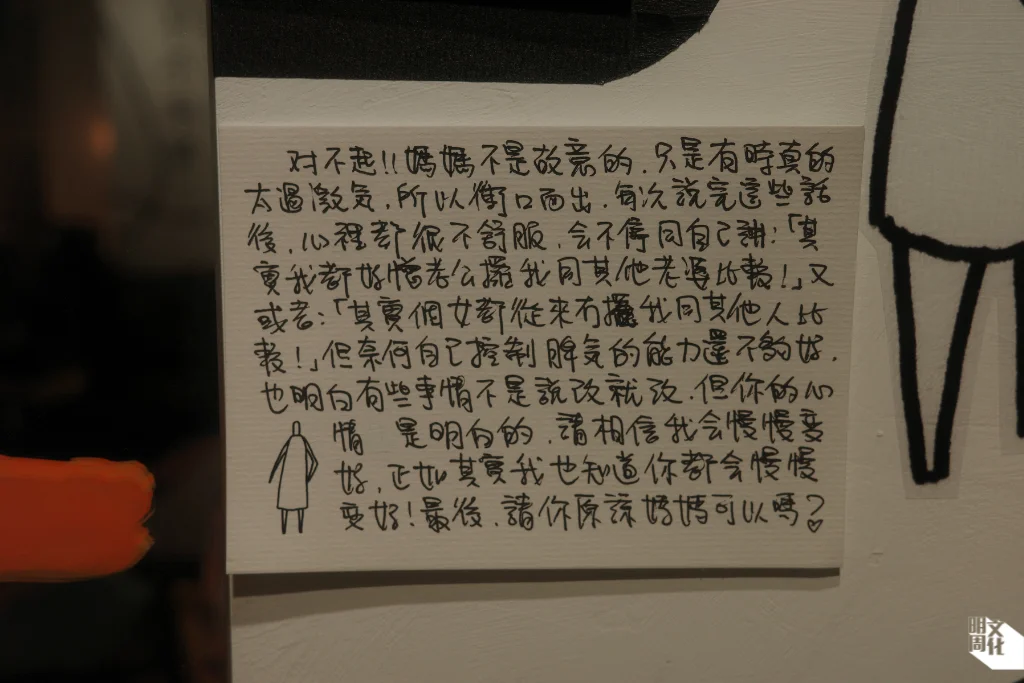 对不起!!媽媽不是故意的.只是有時真的
太過激気.所以衝口而出.每次說完這些話
後.心裡都很不舒服.会不停同自己講:「其
實我都好憎老公攞我同其他老婆比較!」又
或者:「其實個女都從來冇攞我同其他人比
較!」但奈何自己控制脾気的能力還不夠好.
也明白有些事情不是說改就改.但你的心
情 是明白的.請相信我会慢慢変
好.正如其實我也知道你都会慢慢
変好!最後.請你原諒媽媽可以嗎?
明周文化